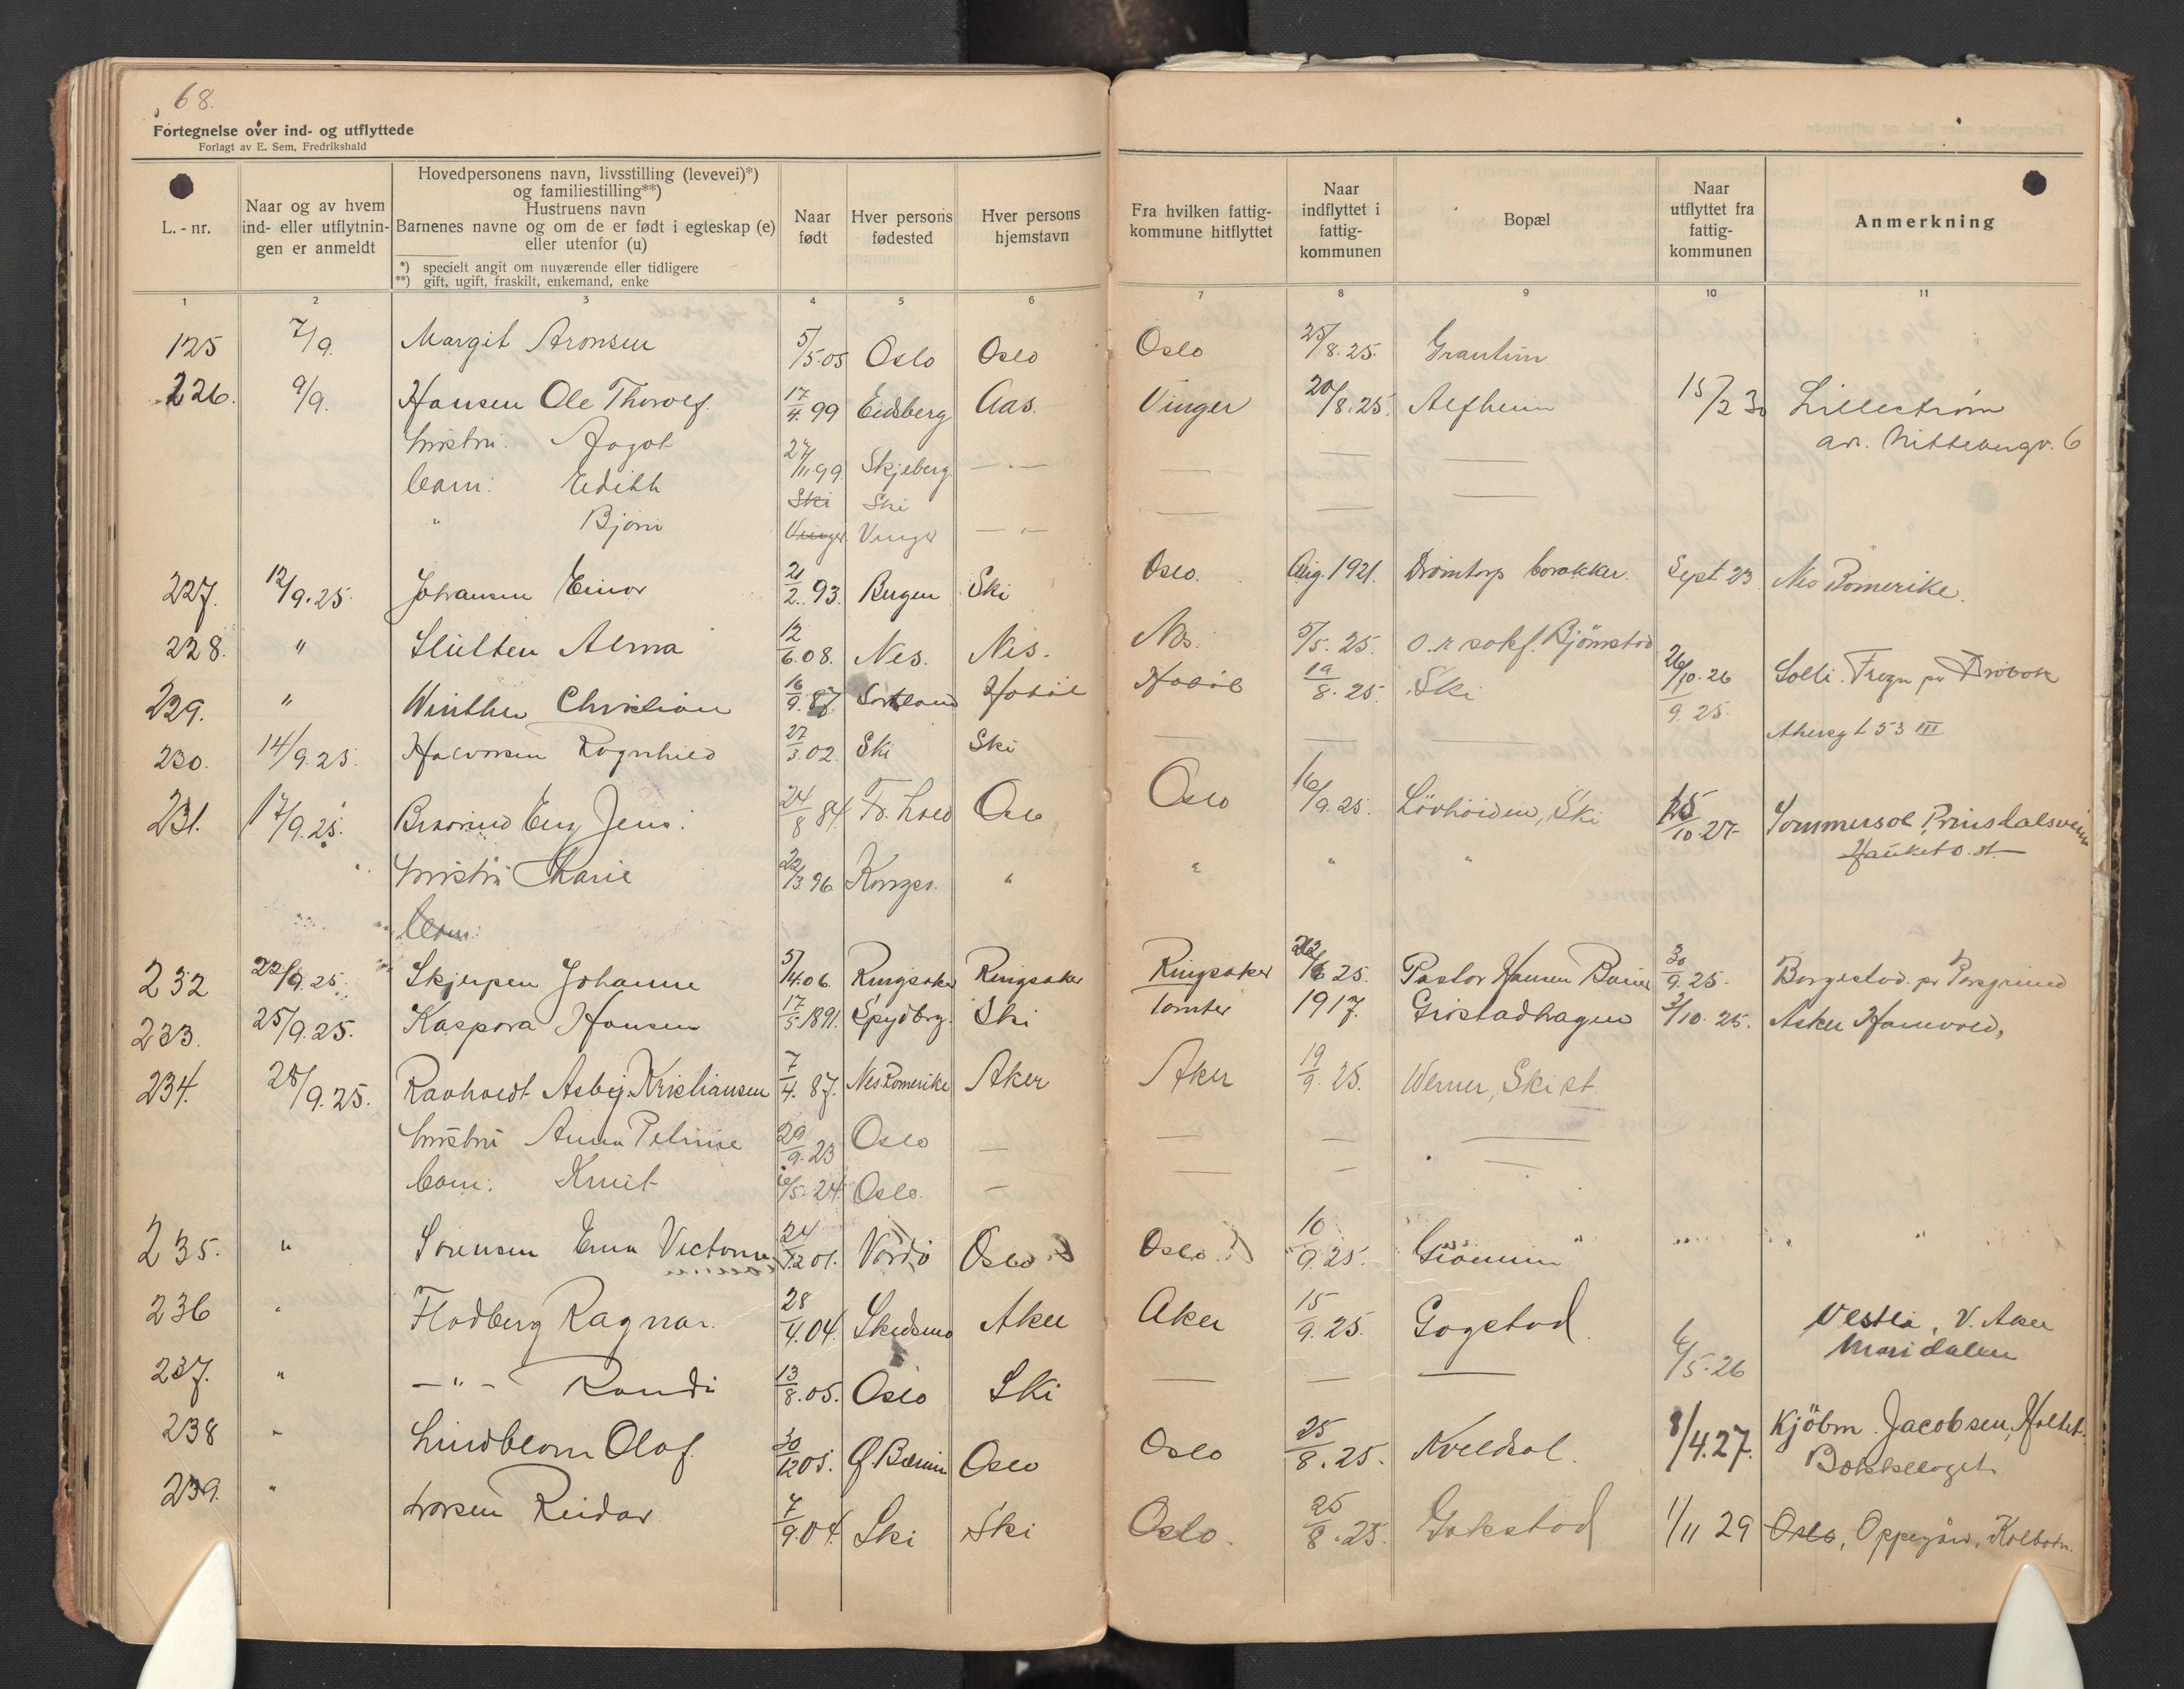 68.
Fortegnelse over ind- og utflyttede
Forlagt av E. Sem, Fredrikshald
L.-nr.
Naar og av hvem ind- eller utflytnin-gen er anmeldt
Hovedpersonens navn, livsstilling (levevei)*)
og familiestilling**)
Hustruens navn
Barnenes navne og om de er født i egteskap (e)
eller utenfor (u)
*) specielt angit om nuværende eller tidligere
**) gift, ugift, fraskilt, enkemand, enke
Naar født
Hver persons fødested
Hver persons hjemstavn
Fra hvilken fattig-kommune hitflyttet
Naar indflyttet i fattig-kommunen
Bopæl
Naar utflyttet fra fattig-kommunen
Anmerkning
1 2 3 4 5 6 7 8 9 10 11
125 7/9. Margit Aronsen 5/5.05 Oslo Oslo Oslo 25/8.25. Grantun
226. 9/9. Hansen Ole Thorolf 17/4 99 Eidsberg Aas. Vinger 20/8.25. Alfheim 15/2 30 Lillestrøm
hustru: Aagot 27/11.99 Skjeberg — " — — — —
av. Nittebergv. 6
barn: Edith Ski Ski —
" Bjørn Vinger Vinger — " — —
227. 12/9.25. Johansen Einar 21/2.93. Bergen Ski Oslo. Aug. 1921. Drømtorp barakker. Sept 23 Nes Romerike.
228. " Slutten Alma 12/6.08. Nes. Nes. Nes. 5/5.25. o.r.sakf. Bjørnstad 26/10.26 Solli. Frogn pr Drøbak
229. " Winther Christian 16/9.87 Sortland Hobøl Hobøl 19/8.25. Ski /9.25.
230. 14/9.25. Halvorsen Ragnhild 27/3.02. Ski Ski — — — Akersgt 53 III
231. 17/9.25. Eng Jens. 24/8 84. Fr. hald Oslo Oslo 16/9.25. Løvhöiden, Ski 15/10.27 Sommersol, Prinsdalsveien
Hauketo st.
hustru Marie 22/3.96 " " " "
barn:
232 22/9.25. Skjerpen Johanne 5/4.06. Ringsaker Ringsaker Ringsaker /6 25. Pastor Hansen 30/9.25. Borgestad pr Porsgrund
233. 25/9.25. Kaspara Hansen 17/5.1891. Spydbrg. Ski Tomter 1917. Gristadhagen 3/10.25. Asker
234. 28/9.25. Ravholdt Asbj. Kristiansen 7/4.87. Nes Romerike Aker Aker 19/9.25. Werner, Ski st.
hustru Anna Petrine 29/9.23 Oslo — — — —
barn: Knut /5.24. Oslo. — — — —
235. " Sørensen Erna Victoria 24/12.01. Vardø Oslo Oslo. 10/9.25.
236 " Flodberg Ragnar. 28/4.04. Skedsmo Aker Aker 15/9.25. Gogstad. Vestli, V. Aker
Maridalen
237. " — " — Randi 13/8.05. Oslo Ski — — — 6/5.26
238 " Lindblom Olaf. 30/12 05. Ø. Bærum Oslo Oslo 25/8.25. Kveldsol. 8/4.27. Kjöbm. Jacobsen, Holtet.
Bækkelaget
239. " Larsen Reidar 7/9.04. Ski Ski Oslo. 25/8.25. Gokstad 1/11 29 Oslo, Oppegård, Kolbotn.